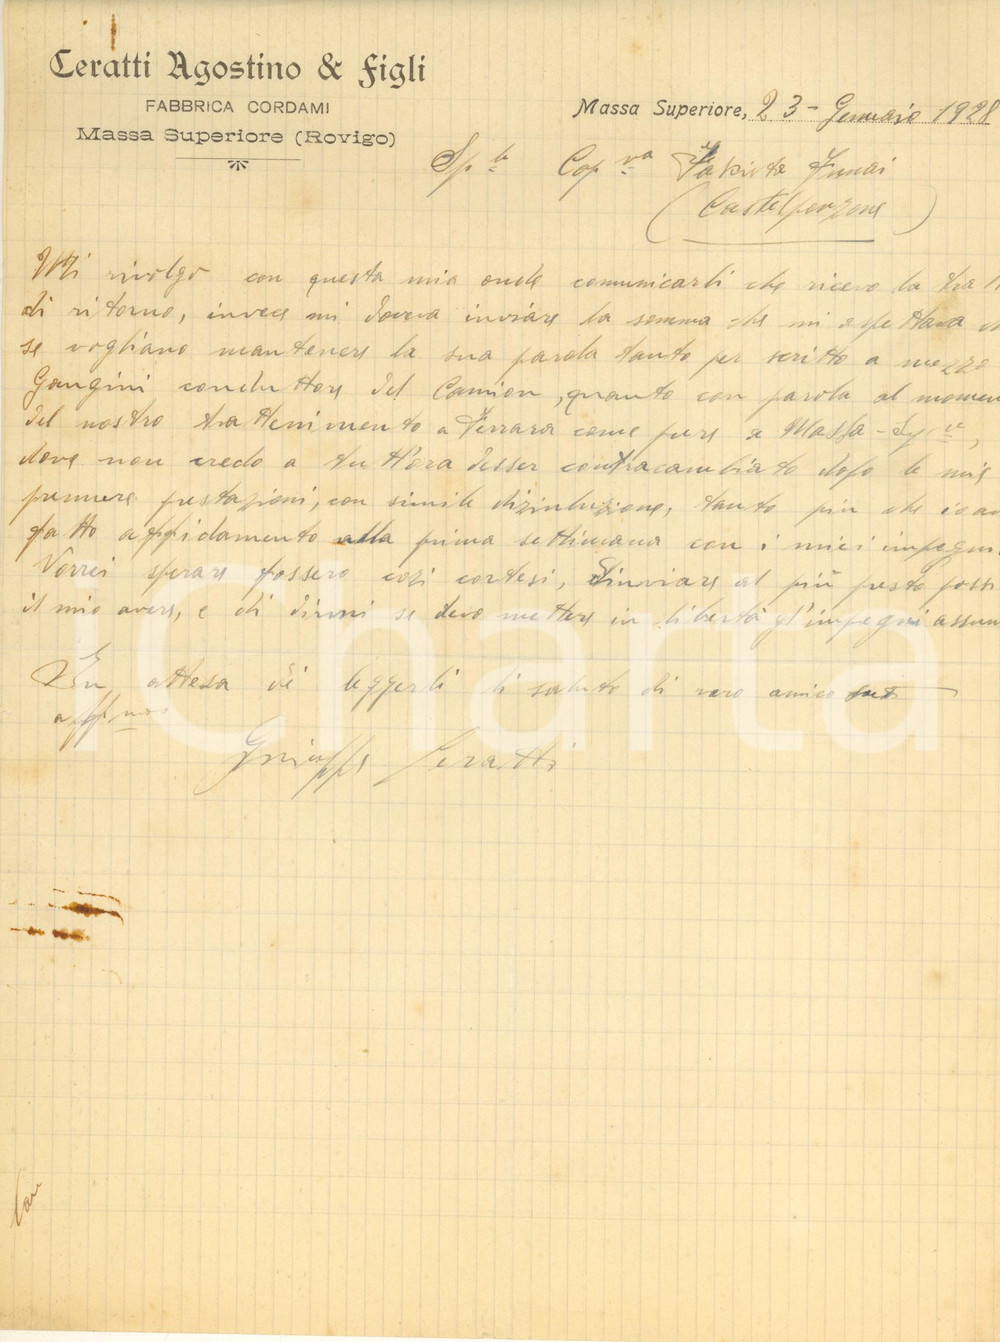 Ceratti Agostino & Figli
FABBRICA CORDAMI
Massa Superiore (Rovigo)
Massa Superiore, 23 - Gennaio 1928
Sp.le Cop.va Funai
(Castelponzone)
Mi rivolgo con questa mia onde comunicarli che ricevo la tra
di ritorno, invece mi doveva inviare la somma che mi aspettava
se vogliano mantenere la sua parola tanto per scritto a mezzo
Gangini conduttore del Camion, quanto con parola al momen
del nostro trattenimento a Ferrara come pure a Massa-Sup.re,
dove non credo a tutt'ora desser contracambiato dopo le mie
premure prestazioni, con simile dizinluzione, tanto più che io av
fatto affidamento alla prima settimana con i miei impegni
Vorrei sperare fossero cozi cortesi, d'inviare al più presto possi
il mio avere, e di dirmi se devo mettere in libertà gl'impegni assun
In attesa di leggerli li saluto di vero amico
aff.mo
Giuseppe Ceratti
iCharta